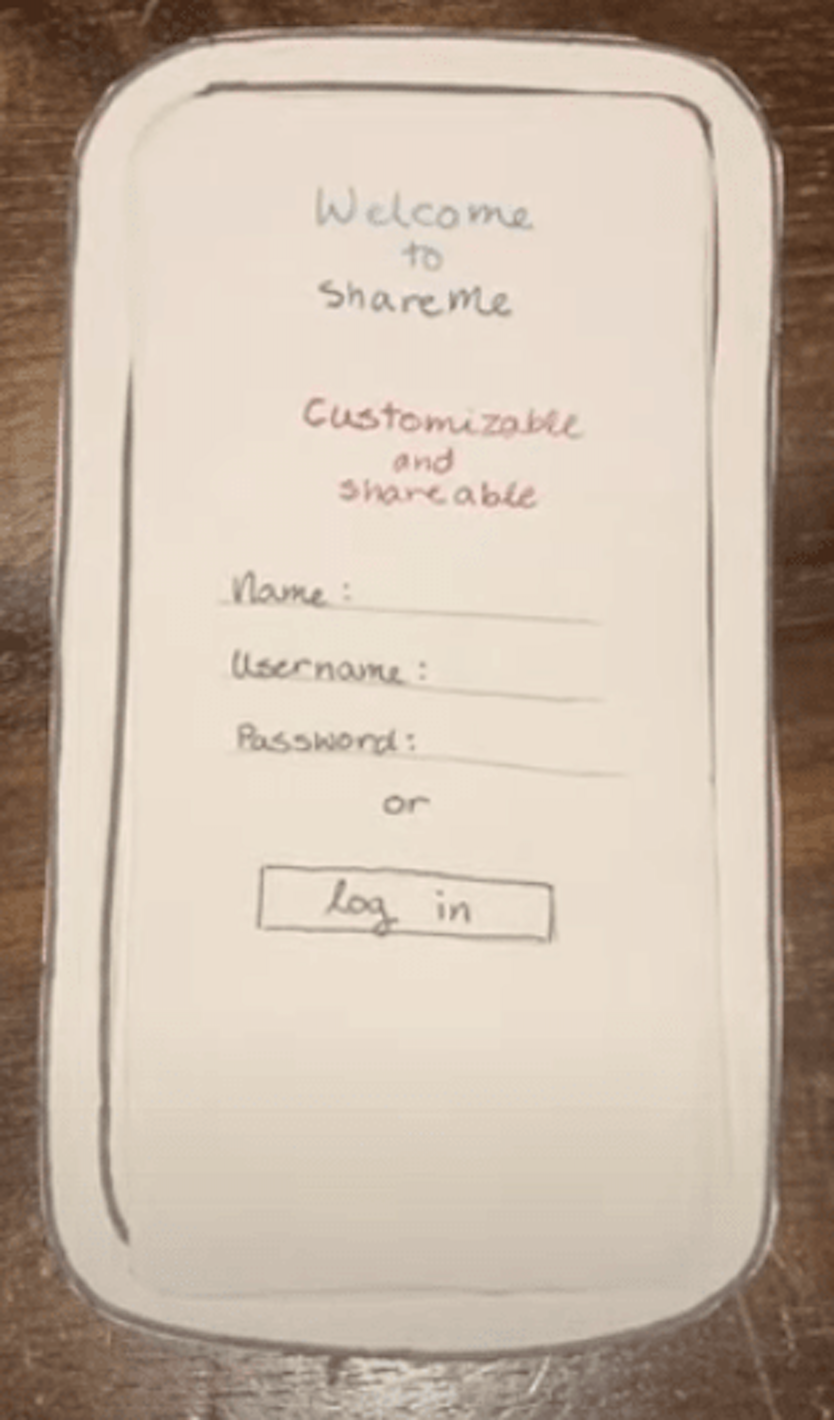 Welcome
to
ShareMe
Customizable
and
shareable
Name:
Username:
Password:
or
log in